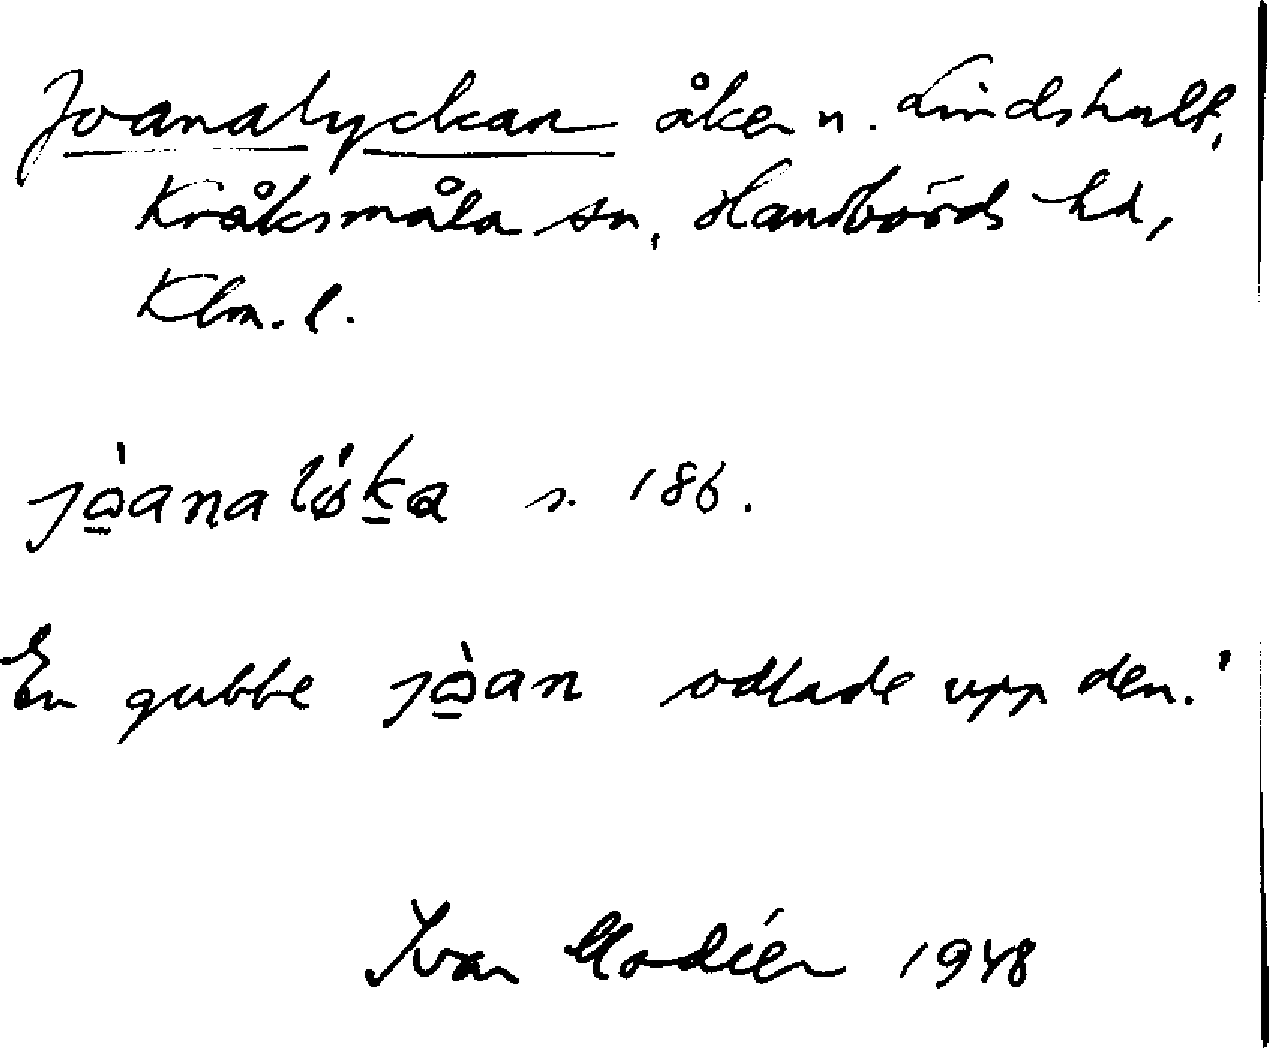 Joanalyckan åker n. Lindshult,
Kråksmåla sn, Handbörds hd,
Klm. l.
jòanalø̍ka s. 186.
En gubbe jòan odlade upp den.
Ivar Modéer 1948